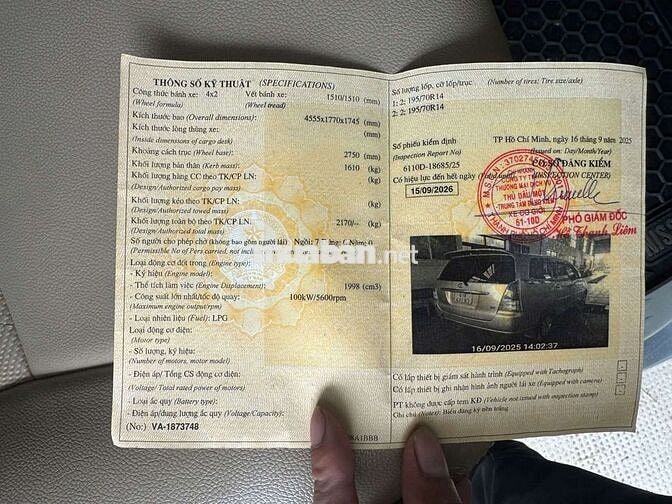 THÔNG SỐ KỸ THUẬT (SPECIFICATIONS)
Công thức bánh xe: 4x2 Vết bánh xe: 1510/1510 (mm)
(Wheel formula) (Wheel tread)
Kích thước bao (Overall dimensions): 4555x1770x1745 (mm)
Kích thước lòng thùng xe: (mm)
(Inside dimensions of cargo desk)
Khoảng cách trục (Wheel base): 2750 (mm)
Khối lượng bản thân (Kerb mass): 1610 (kg)
Khối lượng hàng CC theo TK/CP LN: (kg)
(Design/Authorized cargo pay mass)
Khối lượng kéo theo TK/CP LN: (kg)
(Design/Authorized towed mass)
Khối lượng toàn bộ theo TK/CP LN: 2170/-- (kg)
(Design/Authorized total mass)
Số người cho phép chở (không bao gồm người lái) Ngồi: 7
(Permissible No of Pers carried, not inc
Loại động cơ đốt trong (Engine type):
- Ký hiệu:
(Engine model)
- Thể tích làm việc (Engine Displacement): 1998 (cm3)
- Công suất lớn nhất/tốc độ quay: 100kW/5600rpm
(Maximum engine output/rpm)
- Loại nhiên liệu (Fuel): LPG
Loại động cơ điện:
(Motor type)
- Số lượng, ký hiệu:
(Number of motors, motor model)
- Điện áp/ Tổng CS động cơ điện:
(Voltage/ Total rated power of motors)
- Loại ắc quy (Battery type):
- Điện áp/dung lượng ắc quy (Voltage/Capacity):
(No:) VA-1873748
8A1BBB
Số lượng lốp, cỡ lốp/trục: (Number of tires: Tire size/axle)
1: 2; 195/70R14
2: 2; 195/70R14
Số phiếu kiểm định TP Hồ Chí Minh, ngày 16 tháng 9 năm 2025
(Inspection Report No) (Issued on: Day/Month/Year)
6110D-18685/25 CƠ SỞ ĐĂNG KIỂM
Có hiệu lực đến hết ngày (INSPECTION CENTER)
15/09/2026
CÔNG TY TNHH
THƯƠNG MẠI DỊCH VỤ
THỦ DẦU MỘT
TRUNG TÂM ĐĂNG KIỂM
XE CƠ GIỚI
61-10D
PHÓ GIÁM ĐỐC
Thanh Liêm
16/09/2025 14:02:37
Có lắp thiết bị giám sát hành trình (Equipped with Tachograph)
Có lắp thiết bị ghi nhận hình ảnh người lái xe (Equipped with camera)
PT không được cấp tem KĐ (Vehicle not issued with inspection stamp)
Ghi chú (Notes): Biển đăng ký nền trắng